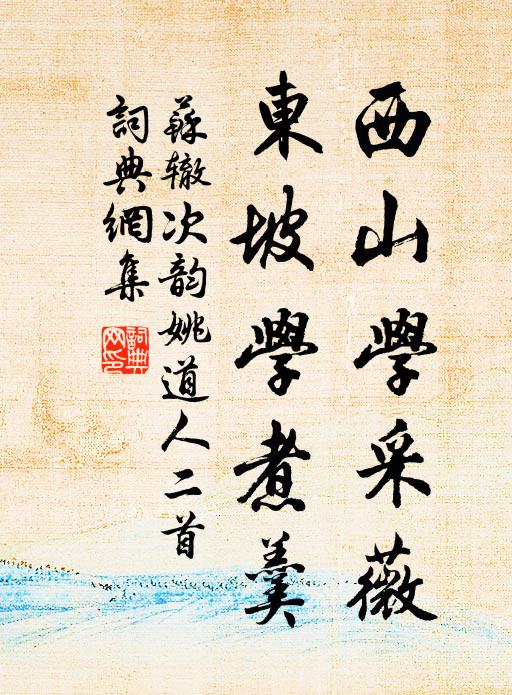 西山學采薇
東坡學煮羹
蘇辙次韵姚道人二首
詞典網集
詞典网印